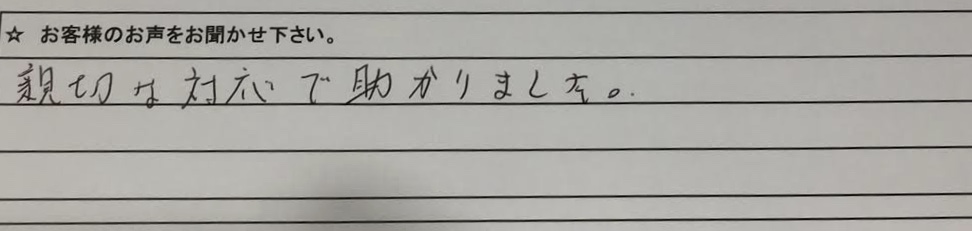 ☆ お客様のお声をお聞かせ下さい。
親切な対応で助かりました。